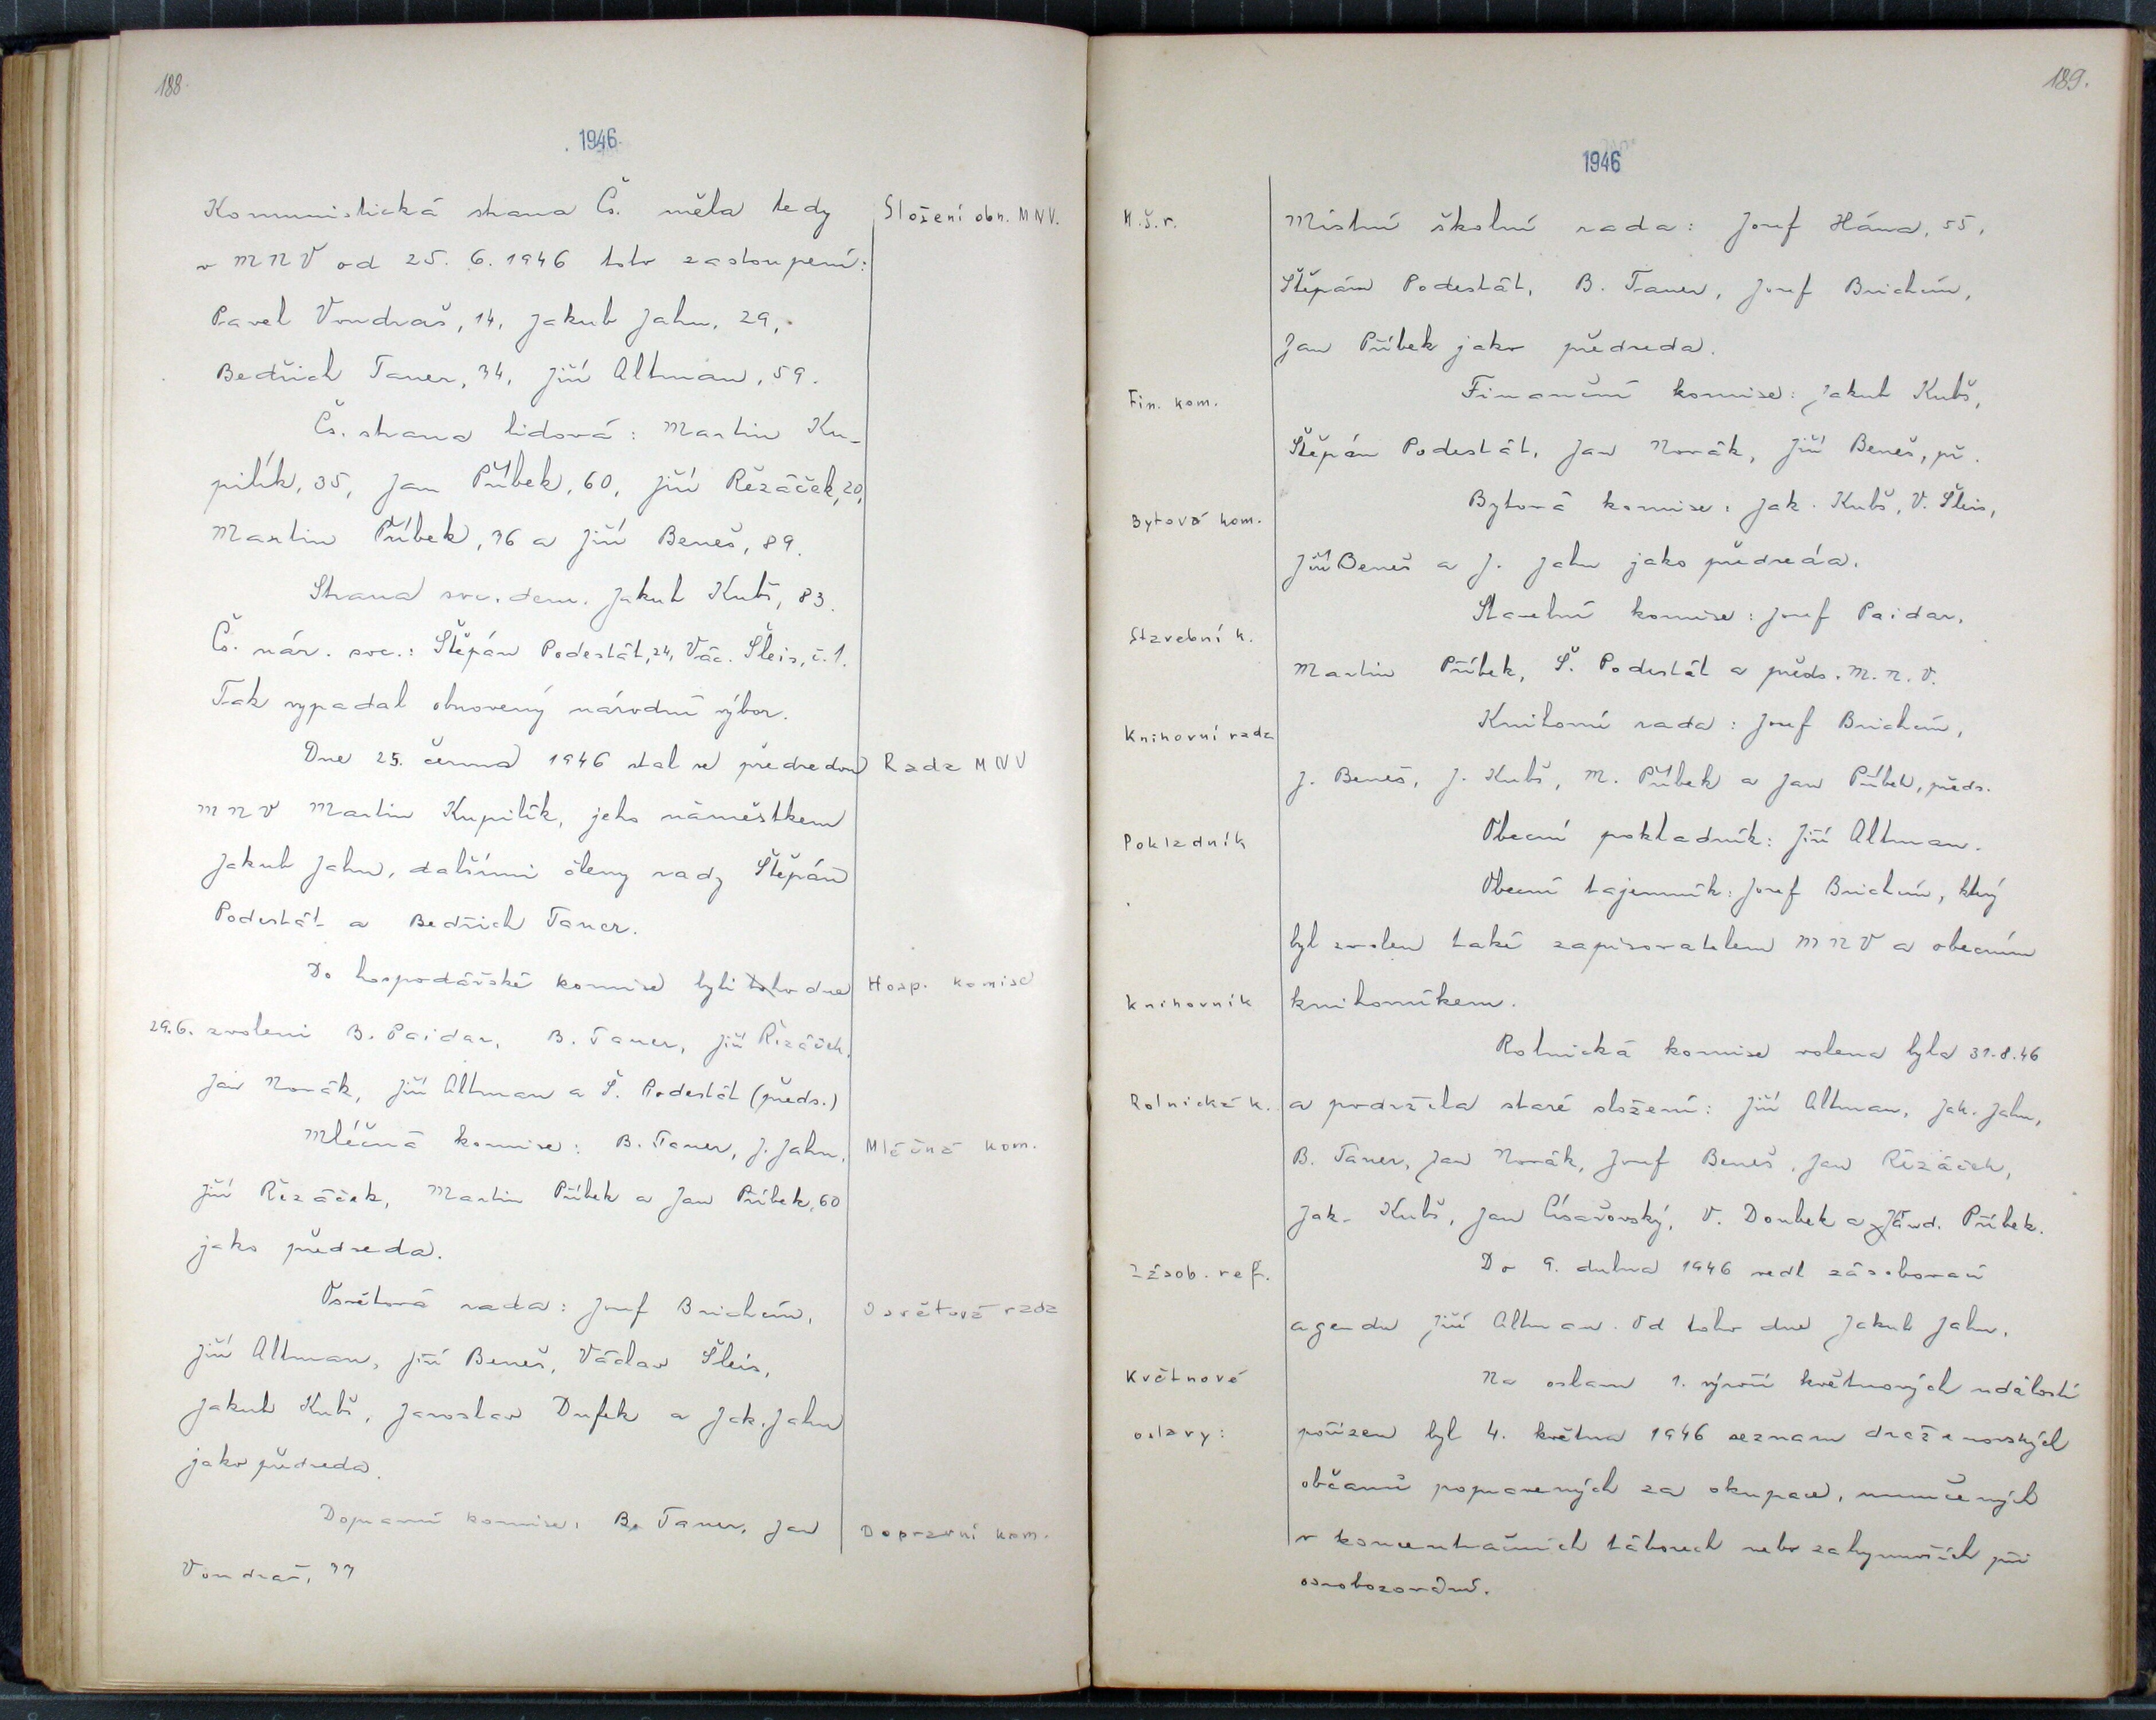 188.
1946
Komunistická strana Čs. měla tedy
Složení obn. MNV.
v MNV od 25. 6. 1946 toto zastoupení:
Pavel Vondraš, 14, Jakub Jahn, 29,
Bedřich Taner, 34, Jiří Altman, 59.
Čs. strana lidová: Martin Ku-
pilík, 35, Jan Příbek, 60, Jiří Řezáček, 20,
Martin Příbek, 36 a Jiří Beneš, 89.
Strana soc. dem. Jakub Kubš, 83.
Čs. nár. soc.: Štěpán Podestát, 24, Vác. Šleis, č. 1.
Tak vypadal obnovený národní výbor.
Dne 25. června 1946 stal se předsedou
Rada MNV
MNV Martin Kupilík, jeho náměstkem
Jakub Jahn, dalšími členy rady Štěpán
Podestát a Bedřich Taner.
Do hospodářské komise byli toho dne
Hosp. komise
29.6. zvoleni B. Paidar, B. Taner, Jiří Řezáček,
Jan Novák, Jiří Altman a Š. Podestát (předs.)
Mléčná komise: B. Taner, J. Jahn,
Mléčná kom.
Jiří Řezáček, Martin Příbek a Jan Příbek, 60
jako předseda.
Osvětová rada: Josef Brichcín,
Osvětová rada
Jiří Altman, Jiří Beneš, Václav Šleis,
Jakub Kubš, Jaroslav Dufek a Jak. Jahn
jako předseda.
Dopravní komise: B. Taner, Jan
Dopravní kom.
Vondraš, 33
189.
1946
M.š.r.
Místní školní rada: Josef Hána, 55,
Štěpán Podestát, B. Taner, Josef Brichcín,
Jan Příbek jako předseda.
Fin. kom.
Finanční komise: Jakub Kubš,
Štěpán Podestát, Jan Novák, Jiří Beneš, př.
Bytová kom.
Bytová komise: Jak. Kubš, V. Šleis,
Jiří Beneš a J. Jahn jako předseda.
Stavební k.
Stavební komise: Josef Paidar,
Martin Příbek, Š. Podestát a předs. M.N.V.
Knihovní rada
Knihovní rada: Josef Brichcín,
J. Beneš, J. Kubš, M. Příbek a Jan Příbek, předs.
Pokladník
Obecní pokladník: Jiří Altman.
Obecní tajemník: Josef Brichcín, který
byl zvolen také zapisovatelem MNV a obecním
Knihovník
knihovníkem.
Rolnická komise volena byla 31.8.46
Rolnická k.
a podržela staré složení: Jiří Altman, Jak. Jahn,
B. Taner, Jan Novák, Josef Beneš, Jan Řezáček,
Jak. Kubš, Jan Císařovský, V. Doubek a Příbek.
Zásob. ref.
Do 9. dubna 1946 vedl zásobovací
agendu Jiří Altman. Od toho dne Jakub Jahn.
Květnové
Na oslavu 1. výročí květnových událostí
oslavy:
pořízen byl 4. května 1946 seznam draženovských
občanů popravených za okupace, umučených
v koncentračních táborech nebo zahynuvších při
osvobozování.